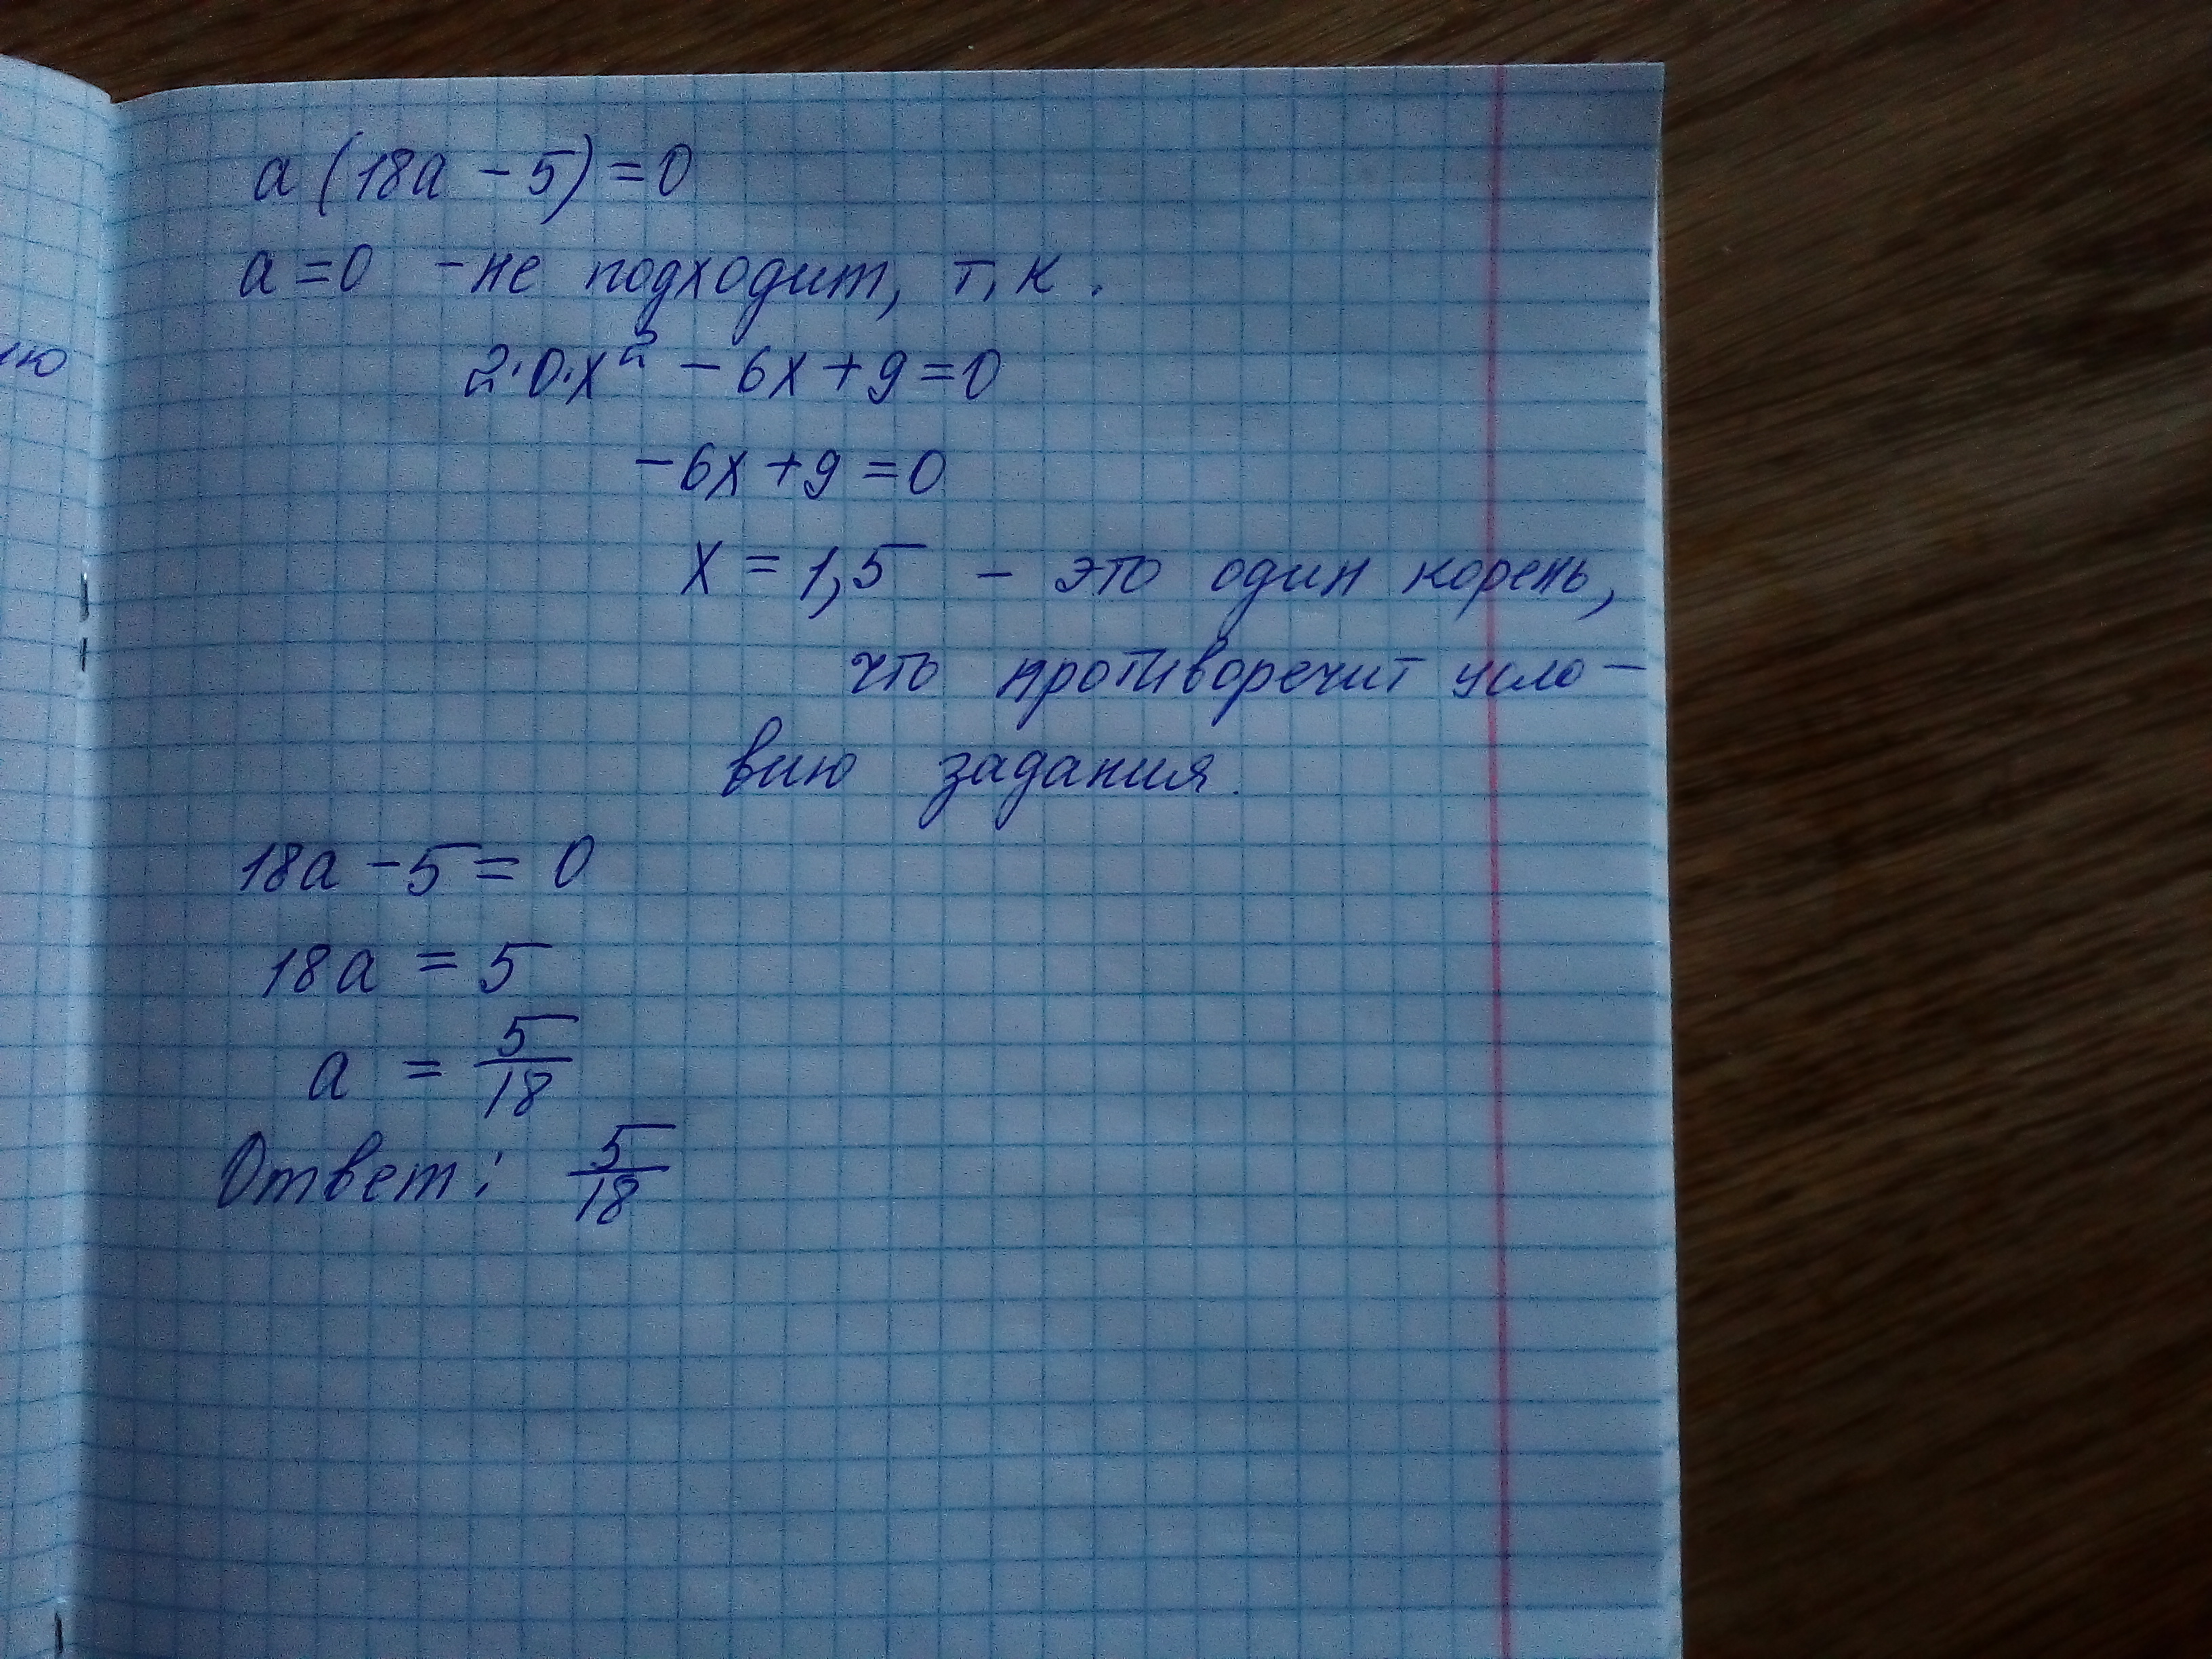 a(18a - 5) = 0
a = 0 - не подходит, т,к.
2·0·x² - 6x + 9 = 0
-6x + 9 = 0
x = 1,5 - это один корень,
что противоречит усло-
вию задания.
18a - 5 = 0
18a = 5
a = 5/18
Ответ: 5/18